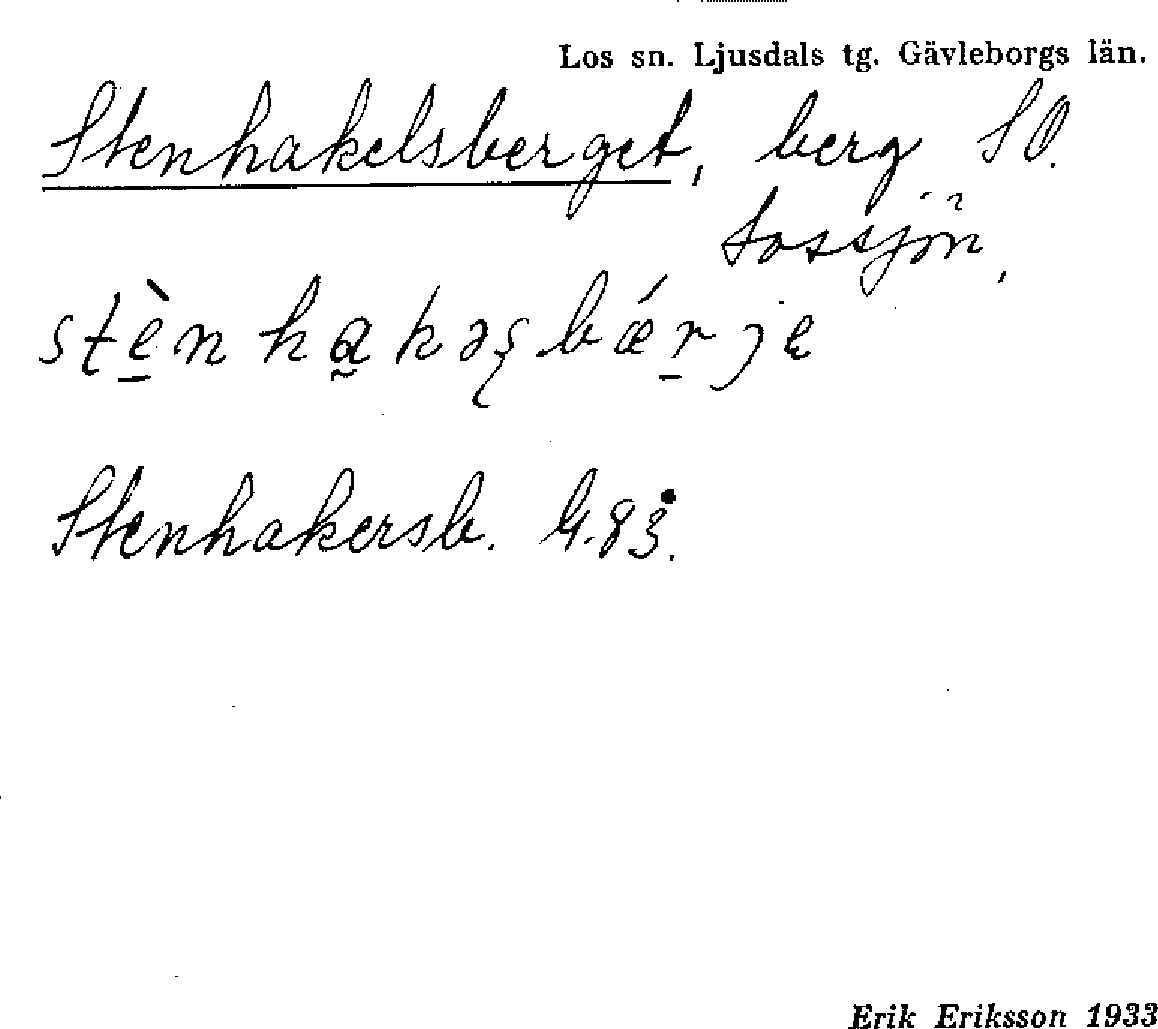 Los sn. Ljusdals tg. Gävleborgs län.
Stenhakelsberget, berg SO.
Lossjön,
stè̱nha̰kəʂbǽṟje
Stenhakersb. G.83.
Erik Eriksson 1933